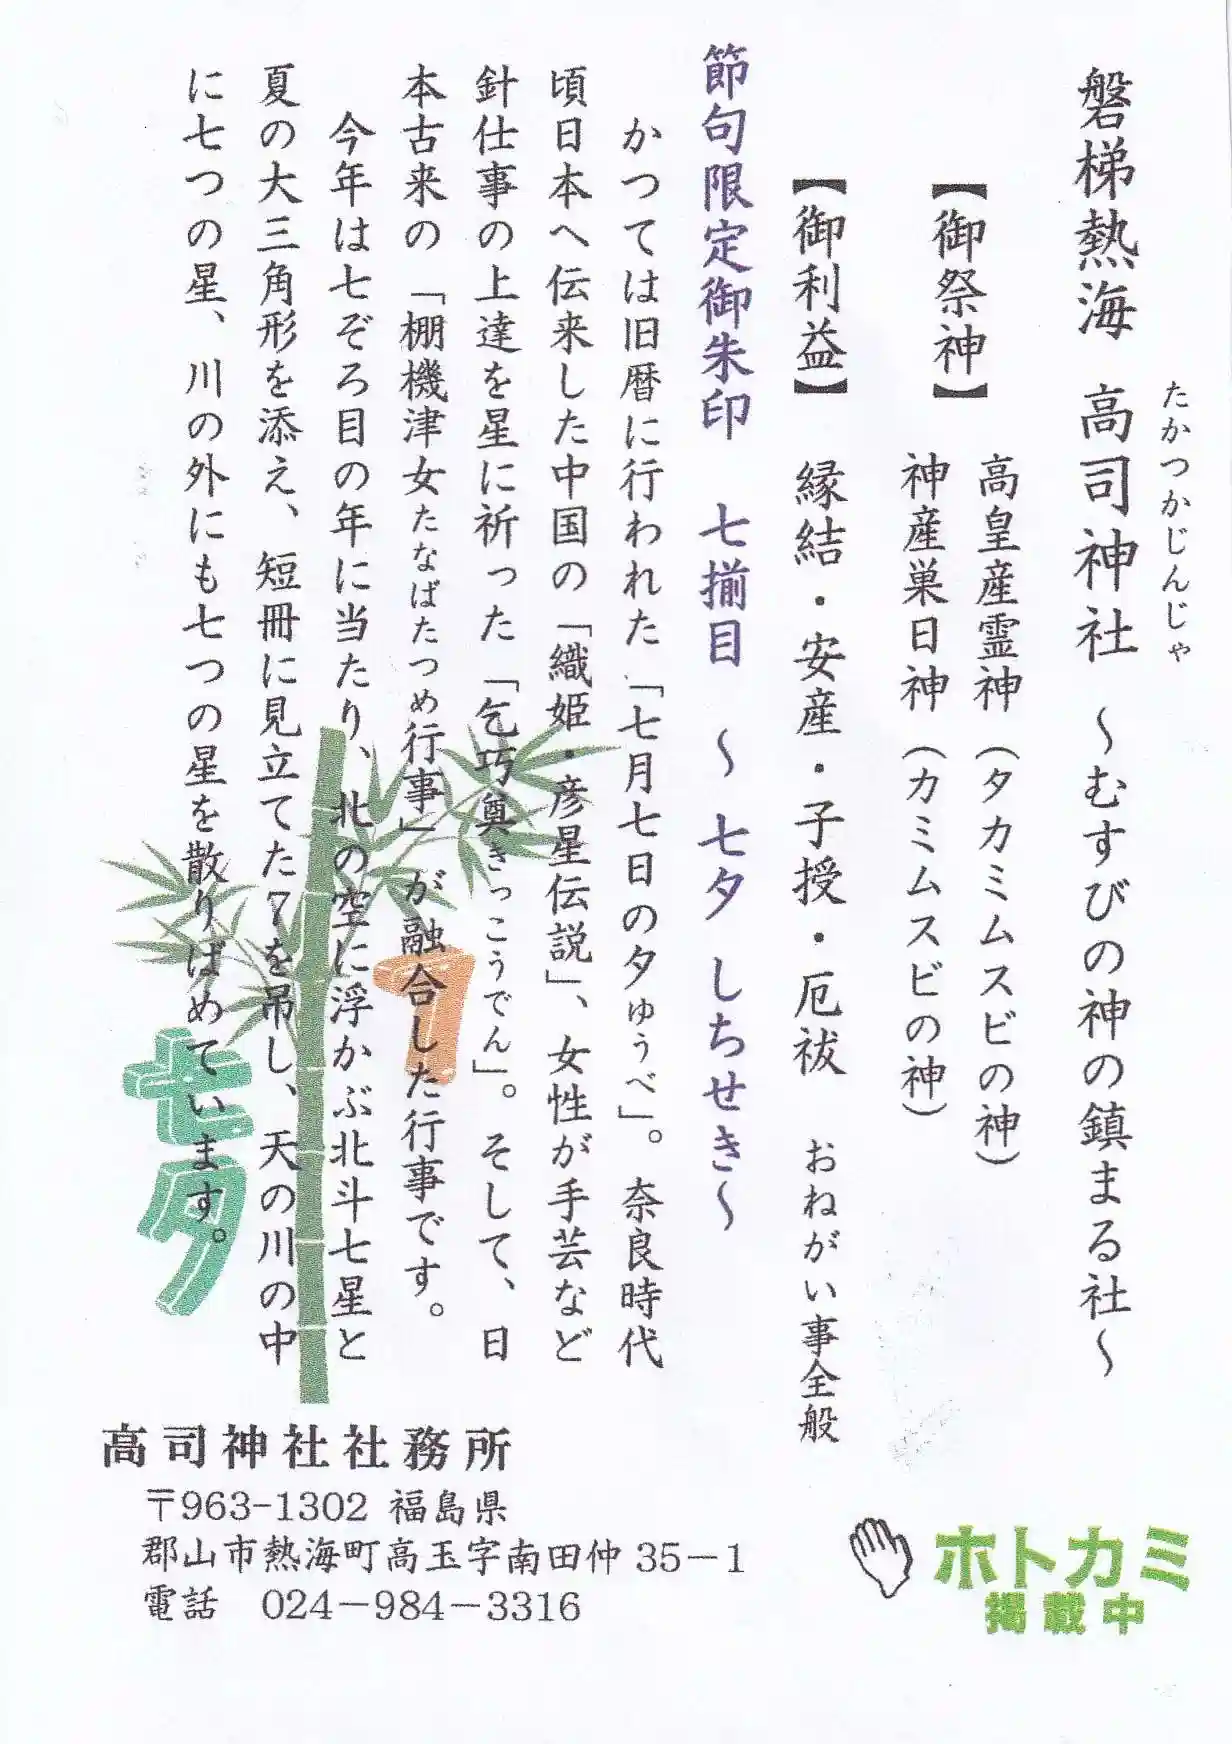 磐梯熱海 高司神社 〜むすびの神の鎮まる社〜
たかつかじんじゃ
【御祭神】 高皇産霊神 (タカミムスビの神)
神産巣日神 (カミムスビの神)
【御利益】 縁結・安産・子授・厄祓 おねがい事全般
節句限定御朱印 七揃目 〜 七夕 しちせき〜
かつては旧暦に行われた「七月七日の夕ゆうべ」。奈良時代
頃日本へ伝来した中国の「織姫・彦星伝説」、女性が手芸など
針仕事の上達を星に祈った「乞巧奠きっこうでん」。そして、日
本古来の「棚機津女たなばたつめ行事」が融合した行事です。
今年は七ぞろ目の年に当たり、北の空に浮かぶ北斗七星と
夏の大三角形を添え、短冊に見立てた7を吊し、天の川の中
に七つの星、川の外にも七つの星を散りばめています。
7
七夕
高司神社社務所
〒963-1302 福島県
郡山市熱海町高玉字南田仲35−1
電話 024−984−3316
ホトカミ
掲載中